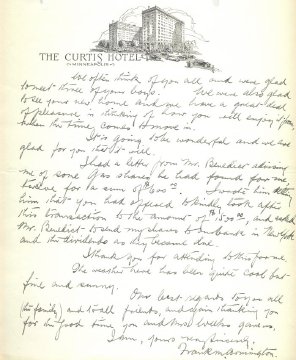 THE CURTIS HOTEL
MINNEAPOLIS
We often think of you all and were glad
to meet three of your boys. We were also glad
to see your new home and we have a great deal
of pleasure in thinking of how you will enjoy it
when the time comes to move in.
It is going to be wonderful and we are
glad for you that it will.
I had a letter from Mr. Benedict advising
me of some Gas shares he had found for me
for a sum of I wrote him
him that you had offered to kindly look after
this transaction to the amount of and asked
Mr. Benedict to send my shares to bank in New York
and the dividends as they become due.
I thank you for attending to this for me.
The weather here has been quite cool but
fine and sunny.
Our best regards to you all
(the family) and to all friends, and again thanking you
for the good time you and Mrs. gave us.
I am, yours very sincerely,
Frank M. Armington.